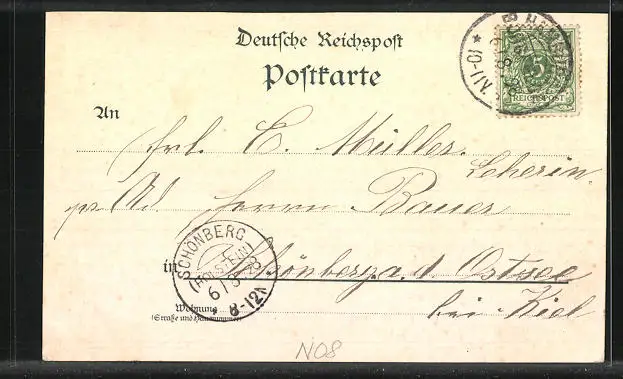 Deutsche Reichspost
Postkarte
5
REICHSPOST
10-11V.
An
Frl. E. Müller.
Leherin.
pr Ad. Herrn Bauer
SCHÖNBERG
(HOLSTEIN)
6/8
8-12N.
in Schönberg a. d. Ostsee
Wohnung
(Straße und Hausnummer)
bei Kiel
N08